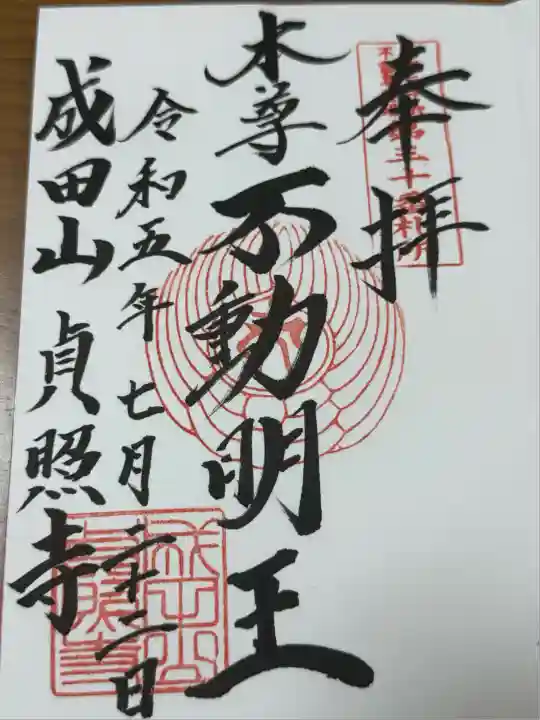 奉拝
本尊
不動明王
令和五年七月二十二日
成田山貞照寺